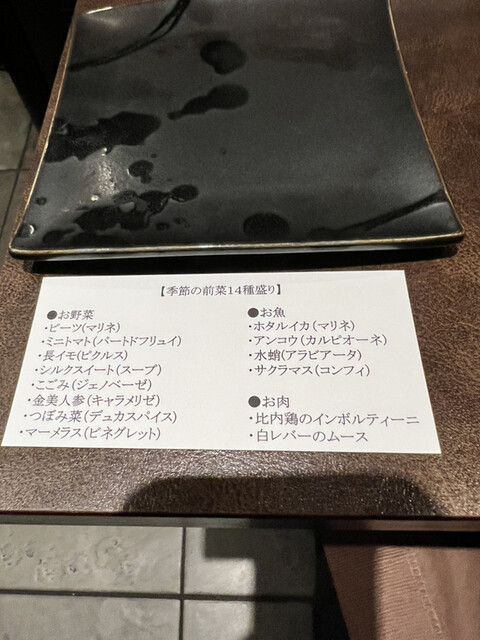 【季節の前菜14種盛り】
●お野菜
・ビーツ(マリネ)
・ミニトマト(パートドフリュイ)
・長イモ(ピクルス)
・シルクスイート(スープ)
・こごみ(ジェノベーゼ)
・金美人参(キャラメリゼ)
・つぼみ菜(デュカスパイス)
・マーメラス(ビネグレット)
●お魚
・ホタルイカ(マリネ)
・アンコウ(カルピオーネ)
・水蛸(アラビアータ)
・サクラマス(コンフィ)
●お肉
・比内鶏のインボルティーニ
・白レバーのムース